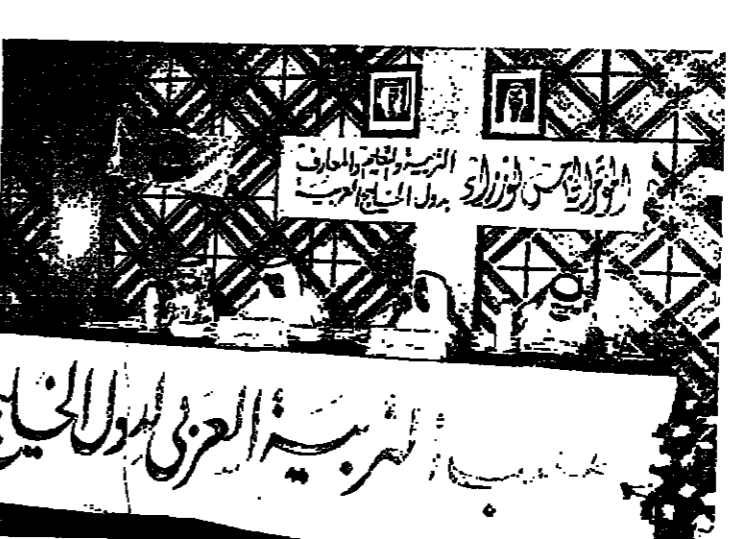 المؤتمر لوزراء
التربية والتعليم والمعارف
بدول الخليج العربية
مكتب التربية العربي لدول الخليج